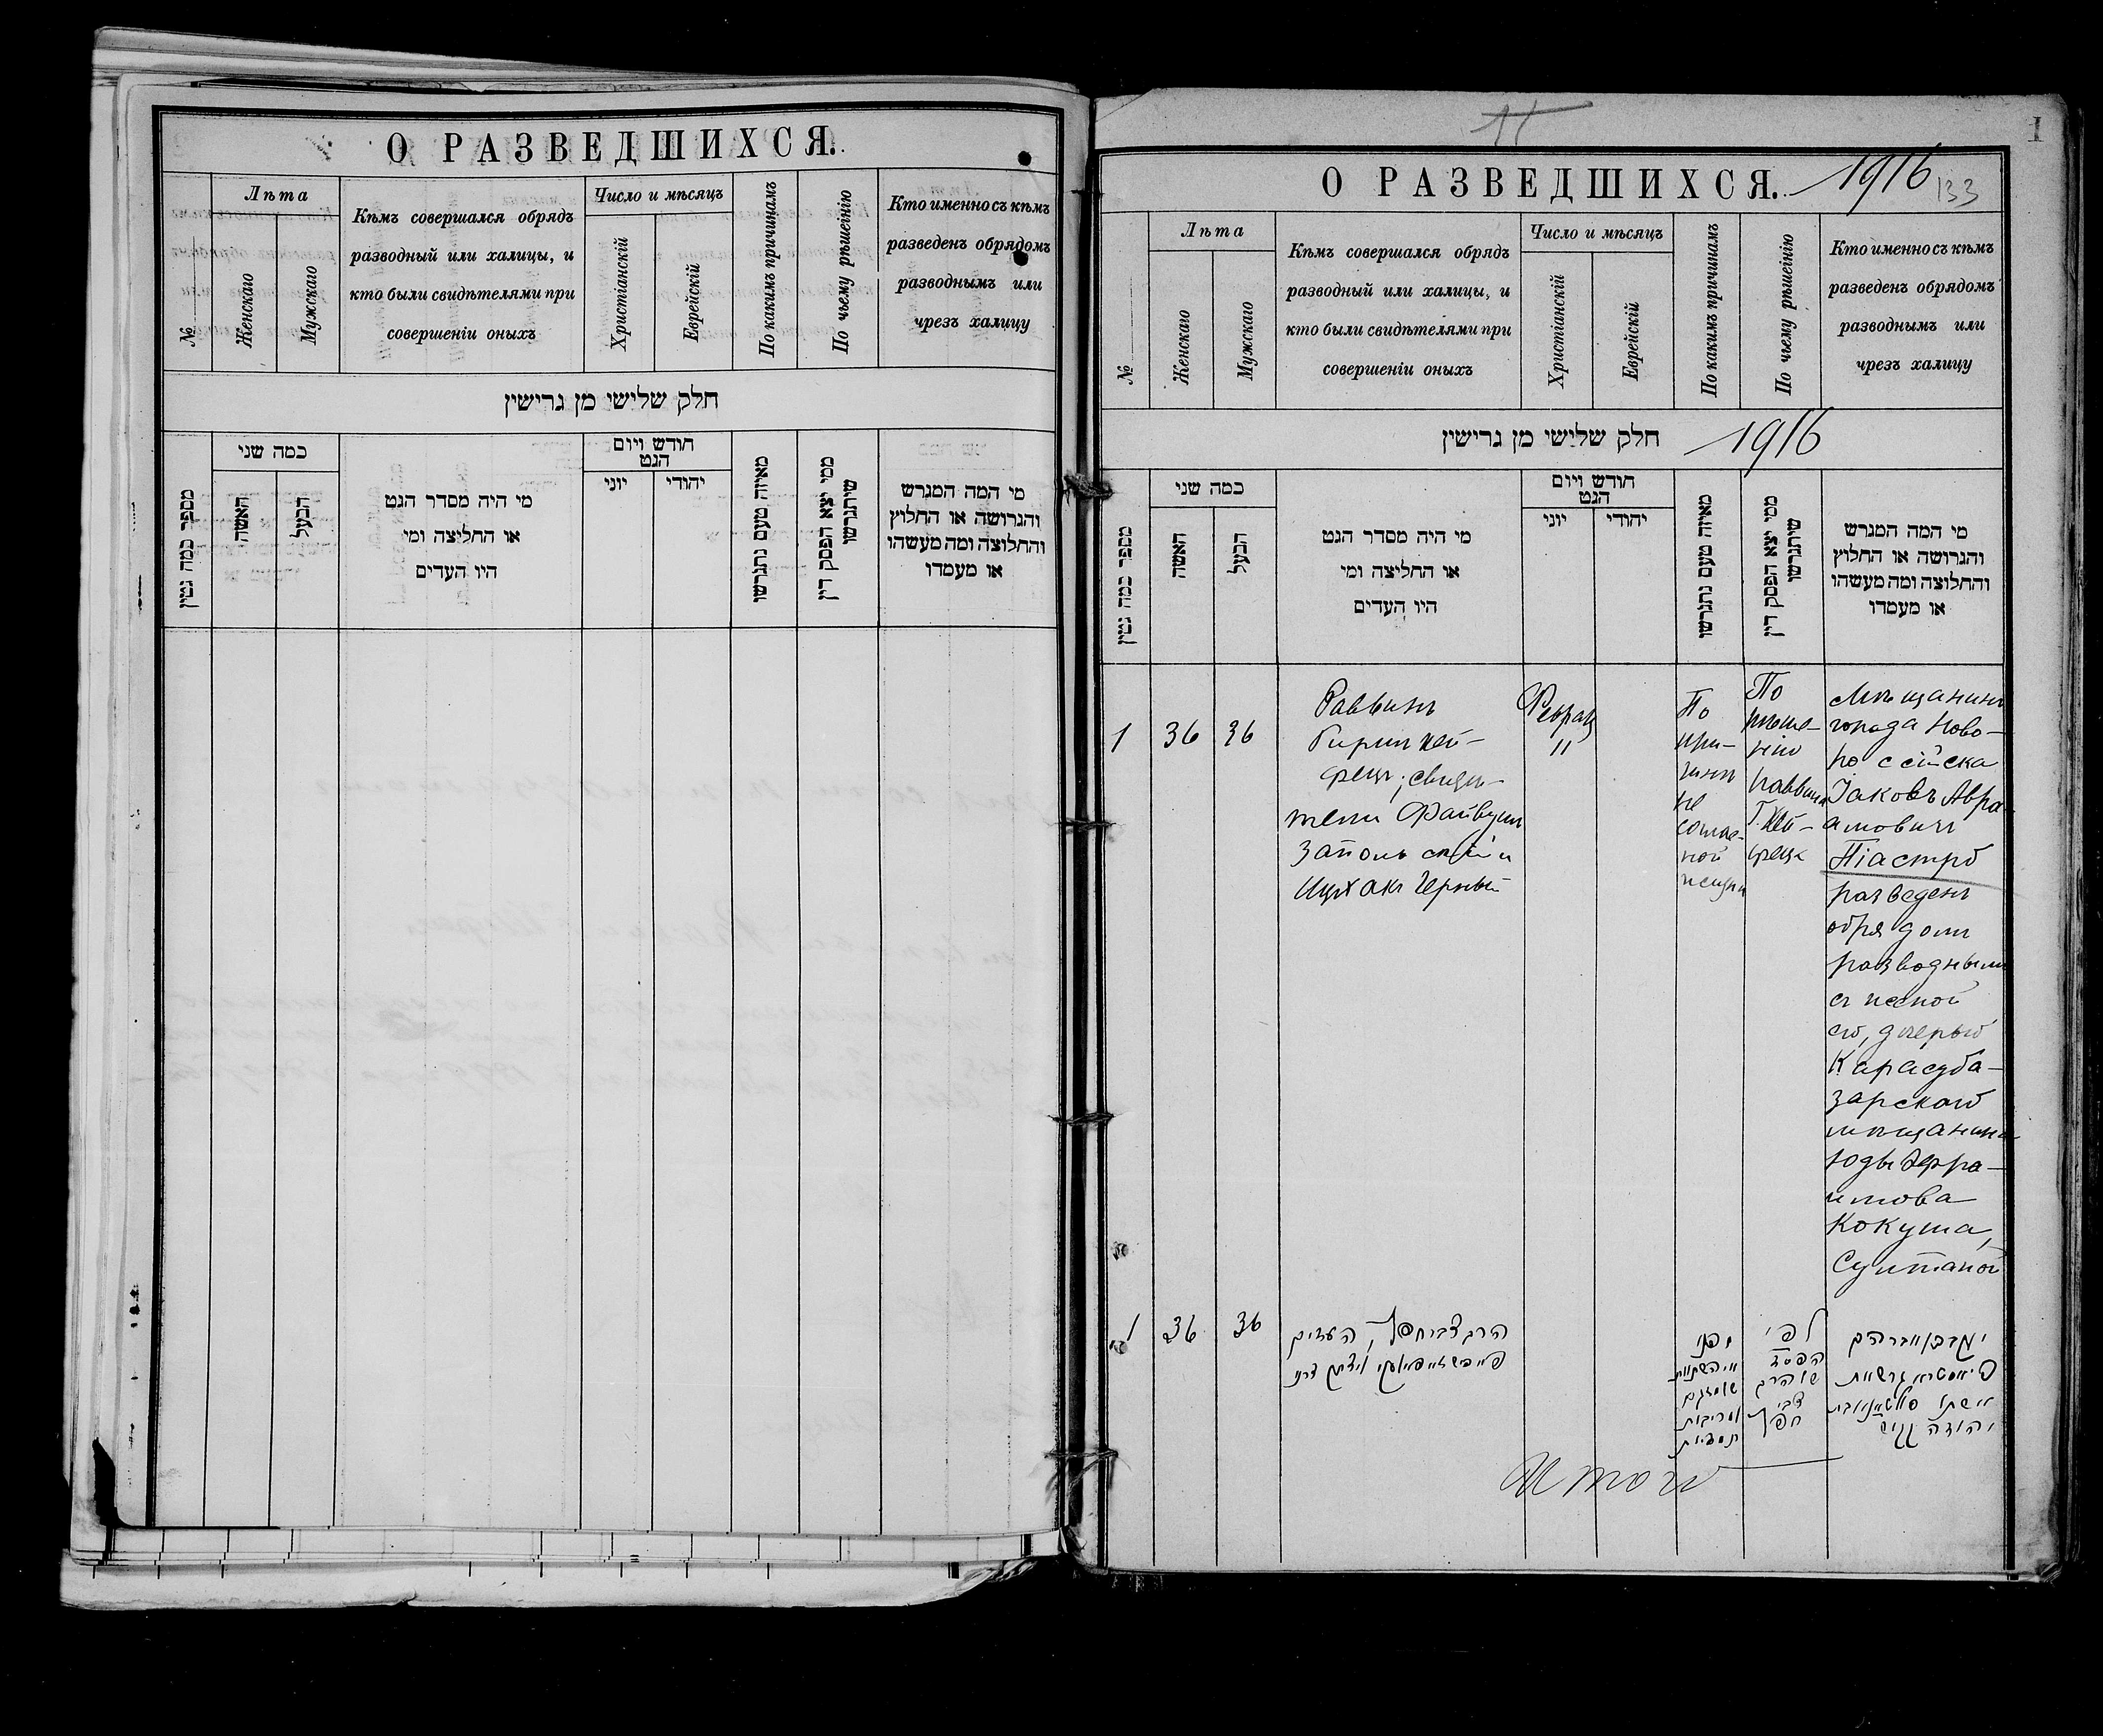 О РАЗВЕДШИХСЯ.
№
Лѣта
Женскаго
Мужскаго
Кѣмъ совершался обрядъ
разводный или халицы, и
кто были свидѣтелями при
совершеніи оныхъ
Число и мѣсяцъ
Христіанскій
Еврейскій
По какимъ причинамъ
По чьему рѣшенію
Кто именно съ кѣмъ
разведенъ обрядомъ
разводнымъ или
чрезъ халицу
חלק שלישי מן גרישין
מספר כמה גטין
כמה שני
האשה
הבעל
מי היה מסדר הגט
או החליצה ומי
היו העדים
חודש ויום
הגט
יוני
יהודי
מאיזה טעם נתגרשו
ממי יצא הפסק דין
שיתגרשו
מי המה המגרש
והגרושה או החלוץ
והחלוצה ומה מעשהו
או מעמדו
1
О РАЗВЕДШИХСЯ. 1916
133
№
Лѣта
Женскаго
Мужскаго
Кѣмъ совершался обрядъ
разводный или халицы, и
кто были свидѣтелями при
совершеніи оныхъ
Число и мѣсяцъ
Христіанскій
Еврейскій
По какимъ причинамъ
По чьему рѣшенію
Кто именно съ кѣмъ
разведенъ обрядомъ
разводнымъ или
чрезъ халицу
חלק שלישי מן גרישין 1916
מספר כמה גטין
כמה שני
האשה
הבעל
מי היה מסדר הגט
או החליצה ומי
היו העדים
חודש ויום
הגט
יוני
יהודי
מאיזה טעם נתגרשו
ממי יצא הפסק דין
שיתגרשו
מי המה המגרש
והגרושה או החלוץ
והחלוצה ומה מעשהו
או מעמדו
1
36
36
Раввинъ
Гирш Хей-
фецъ; свидѣ-
тели Файвуш
Запольскій и
Ицхакъ Черный
Февраля
11
По
при-
чинѣ
не
соглас-
ной
жизни
По
рѣше-
нію
раввина
Г. Хей-
феца
Мѣщанинъ
города Ново-
россійска
Іаковъ Авра-
амовичъ
Піастро
разведенъ
обрядомъ
разводнымъ
съ женой
его, дочерью
Карасуба-
зарскаго
мѣщанина
Юды Эфра-
имова
Кокуша,
Султаной
1
36
36
הרב צבי חפץ, העדים
מפני
לפי
הפסד
שהרב
צבי
חפץ
יעקב בן אברהם
פיאסטרא גרש את
אשתו
יהודה
Итого